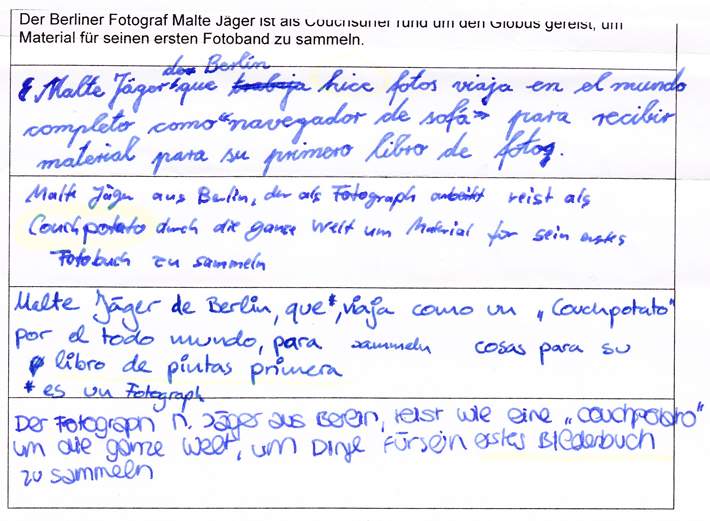 Der Berliner Fotograf Malte Jäger ist als Couchsurfer rund um den Globus gereist, um
Material für seinen ersten Fotoband zu sammeln.
de Berlin
Malte Jäger que hice fotos viaja en el mundo
completo como “navegador de sofá” para recibir
material para su primero libro de fotos.
Malte Jäger aus Berlin, der als Fotograph arbeitet reist als
Couchpotato durch die ganze Welt um Material for sein erstes
Fotobuch zu sammeln
Malte Jäger de Berlin, que*, viaja como un „Couchpotato“
por el todo mundo, para sammeln cosas para su
libro de pintas primera
* es un Fotograph
Der Fotograph M. Jäger aus Berlin, reist wie eine „couchpotato“
um die ganze Welt, um Dinge für sein erstes Bilderbuch
zu sammeln